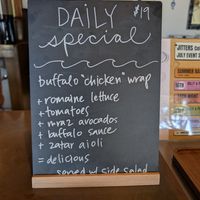 DAILY $19
special
buffalo "chicken" wrap
+ romaine lettuce
+ tomatoes
+ moraz avocados
+ buffalo sauce
+ zatar aioli
= delicious
served w/ side salad
JITTERS CO
JULY EVENT S
SUMMER BA